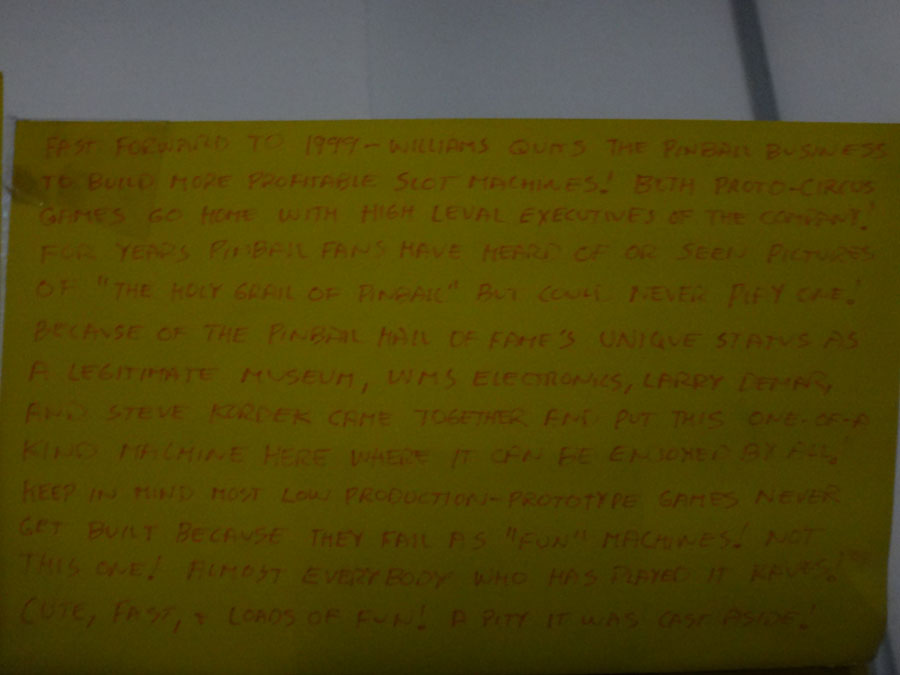 FAST FORWARD TO 1999 - WILLIAMS QUITS THE PINBALL BUSINESS
TO BUILD MORE PROFITABLE SLOT MACHINES! BOTH PROTO-CIRCUS
GAMES GO HOME WITH HIGH LEVAL EXECUTIVES OF THE COMPANY!
FOR YEARS PINBALL FANS HAVE HEARD OF OR SEEN PICTURES
OF "THE HOLY GRAIL OF PINBALL" BUT COULD NEVER PLAY ONE!
BECAUSE OF THE PINBALL HALL OF FAME'S UNIQUE STATUS AS
A LEGITIMATE MUSEUM, WMS ELECTRONICS, LARRY DEMAR,
AND STEVE KORDEK CAME TOGETHER AND PUT THIS ONE-OF-A
KIND MACHINE HERE WHERE IT CAN BE ENJOYED BY ALL!
KEEP IN MIND MOST LOW PRODUCTION-PROTOTYPE GAMES NEVER
GET BUILT BECAUSE THEY FAIL AS "FUN" MACHINES! NOT
THIS ONE! ALMOST EVERYBODY WHO HAS PLAYED IT RAVES!
CUTE, FAST, & LOADS OF FUN! A PITY IT WAS CAST ASIDE!